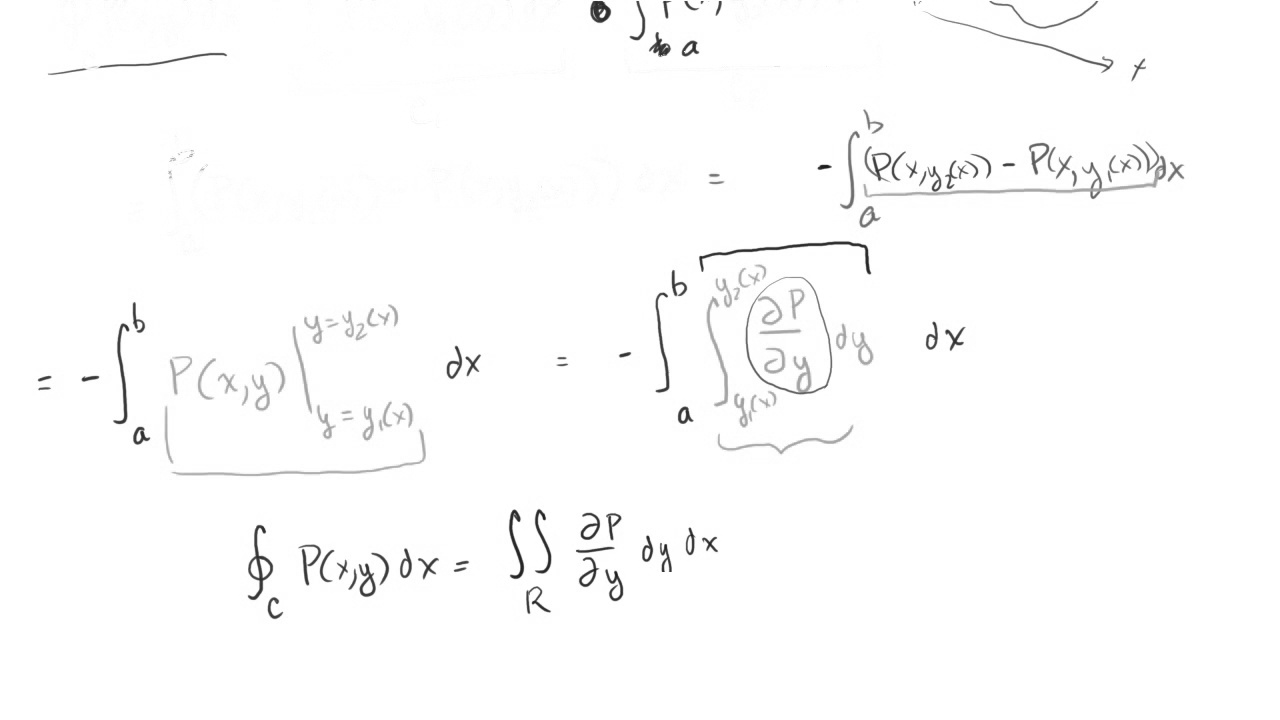 ∫ₐ
x
= -∫ₐᵇ (P(x,y₂(x)) - P(x,y₁(x))) dx
= -∫ₐᵇ P(x,y) |_{y = y₁(x)}^{y = y₂(x)} dx = -∫ₐᵇ ∫_{y₁(x)}^{y₂(x)} ∂P/∂y dy dx
∮_C P(x,y) dx = ∬_R ∂P/∂y dy dx